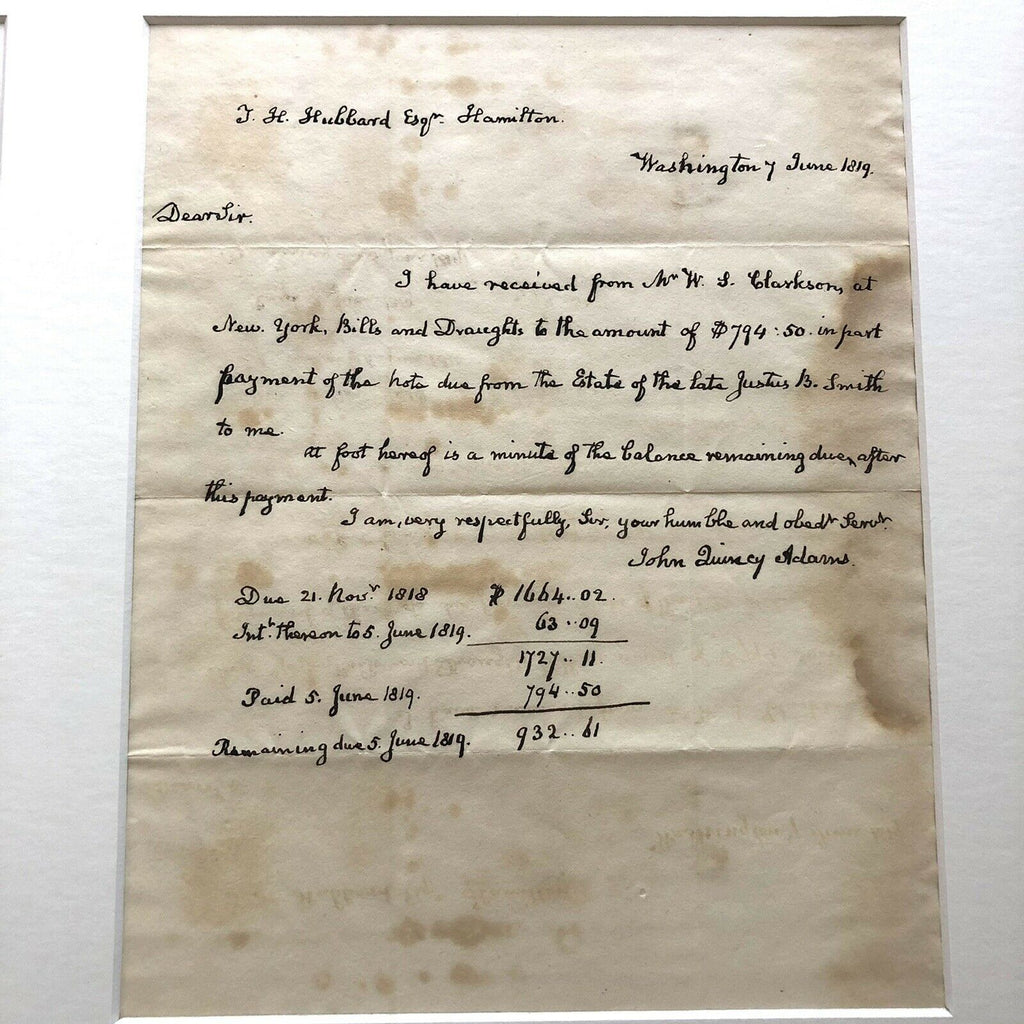 T. H. Hubbard Esqr. Hamilton.
Washington 7 June 1819.
Dear Sir.
I have received from Mr W. S. Clarkson, at
New. York, Bills and Draughts to the amount of $794:50. in part
payment of the note due from the Estate of the late Justus B. Smith
to me.
At foot hereof is a minute of the balance remaining due, after
this payment.
I am, very respectfully, Sir, your humble and obedt Servt.
John Quincy Adams.
Due 21. Novr 1818 $ 1664..02.
Intt. thereon to 5. June 1819. 63..09
1727..11.
Paid 5. June 1819. 794..50
Remaining due 5. June 1819. 932..61